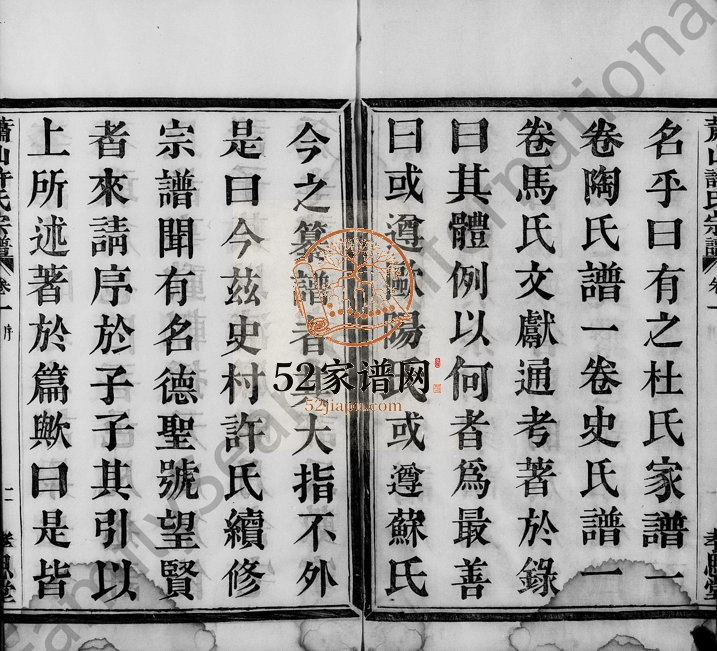 名乎曰有之杜氏家譜一
卷陶氏譜一卷史氏譜一
卷馬氏文獻通考著於錄
曰其體例以何者爲最善
曰或遵歐陽氏或遵蘇氏
今之纂譜者其大指不外
是曰今茲史村許氏續修
宗譜聞有名德聖號望賢
者來請序於子子其引以
上所述著於篇歟曰是皆
蕭山許氏宗譜
卷一
蕭山許氏宗譜
卷一
52家谱网
52jiapu.com
FamilySearch International